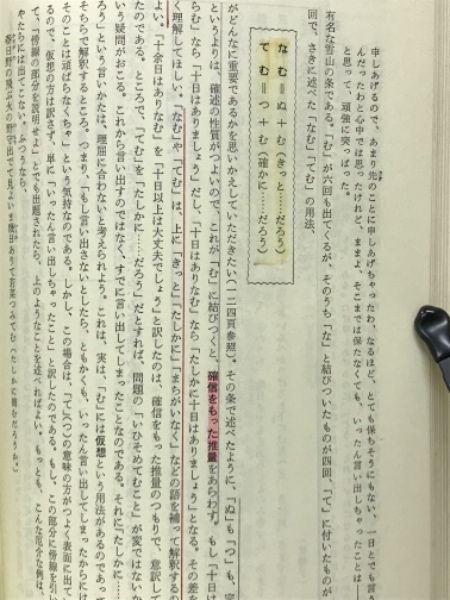 申しあげるので、あまり先のことに申しあげちゃったわ、なるほど、とても保ちそうにもない、一日とでも言え
んだったわと心中では思ったけれど、ままよ、そこまでは保たなくても、いったん言い出しちゃったことは――
と思って、頑強に突っぱった。
有名な雪山の条である。「む」が六回も出てくるが、そのうち「な」と結びついたものが四回、「て」に付いたものが
回で、さきに述べた「なむ」「てむ」の用法、
なむ＝ぬ＋む（きっと……だろう）
てむ＝つ＋む（確かに……だろう）
がどんなに重要であるかを思いかえしていただきたい（一二四頁参照）。その条で述べたように、「ぬ」も「つ」も、完
というよりは、確述の性質がつよいので、これが「む」に結びつくと、確信をもった推量をあらわす。もし「十日は
らむ」なら「十日はありましょう」だし、「十日はありなむ」なら「たしかに十日はありましょう」となる。その差を
く理解してほしい。「なむ」や「てむ」は、上に「きっと」「たしかに」「まちがいなく」などの語を補って解釈するの
よい。「十余日はありなむ」を「十日以上は大丈夫でしょう」と訳したのは、確信をもった推量のつもりで、意訳して
たのである。ところで、「てむ」を「たしかに……だろう」だとすれば、問題の「いひそめてむこと」が変ではないか
いう疑問がおこる。これから言い出すのではなく、すでに言い出してしまったことなのである。それに「たしかに……
ろう」という言いかたは、理屈に合わないと考えられよう。これは、実は、「む」には仮想という用法があるのであって
そちらで解釈するところ。つまり、「もし言い出さないとしたら、ともかくも、いったん言い出してしまったからには
そのことは頑ばらなくちゃ」という気持なのである。しかし、この場合は、「て」（つ）の意味の方がつよく表面に出て
るので、仮想の方は訳さず、単に「いったん言い出しちゃったこと」と訳したのである。もし、この部分に傍線を引い
て、「傍線の部分を説明せよ」とでも出題されたら、上のようなことを述べればよい。もっとも、こんな厄介な例は、
やたらには出てこない。ふつうなら、
春日野の飛ぶ火の野守出でて見よいま幾日ありて若菜つみてむ（たしかに摘めるだろうか。）